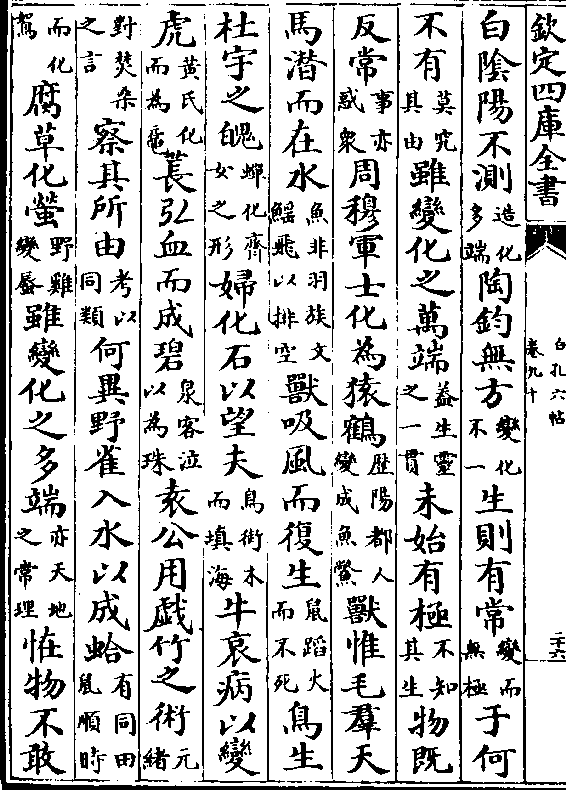 欽定四庫全書
白孔六帖
卷九十
二十六
白陰陽不測造化多端陶鈞無方變化不一生則有常變而無極于何
不有莫究其由雖變化之萬端蓋生靈之一貫未始有極不知其生物既
反常事亦惑衆周穆軍士化為猿鶴歴陽都人變成魚鱉獸惟毛羣天
馬潛而在水魚非羽族文鰩飛以排空獸吸風而復生鼠蹈火而不死鳥生
杜宇之魄蟬化齊女之形婦化石以望夫鳥銜木而填海牛哀病以變
虎黃氏化而為黿萇弘血而成碧泉客泣以為珠袁公用戯竹之術元緒
對焚桑之言察其所由考以同類何異野雀入水以成蛤有同田鼠順時
而化鴽腐草化螢野雞變蜃雖變化之多端亦天地之常理恠物不敢